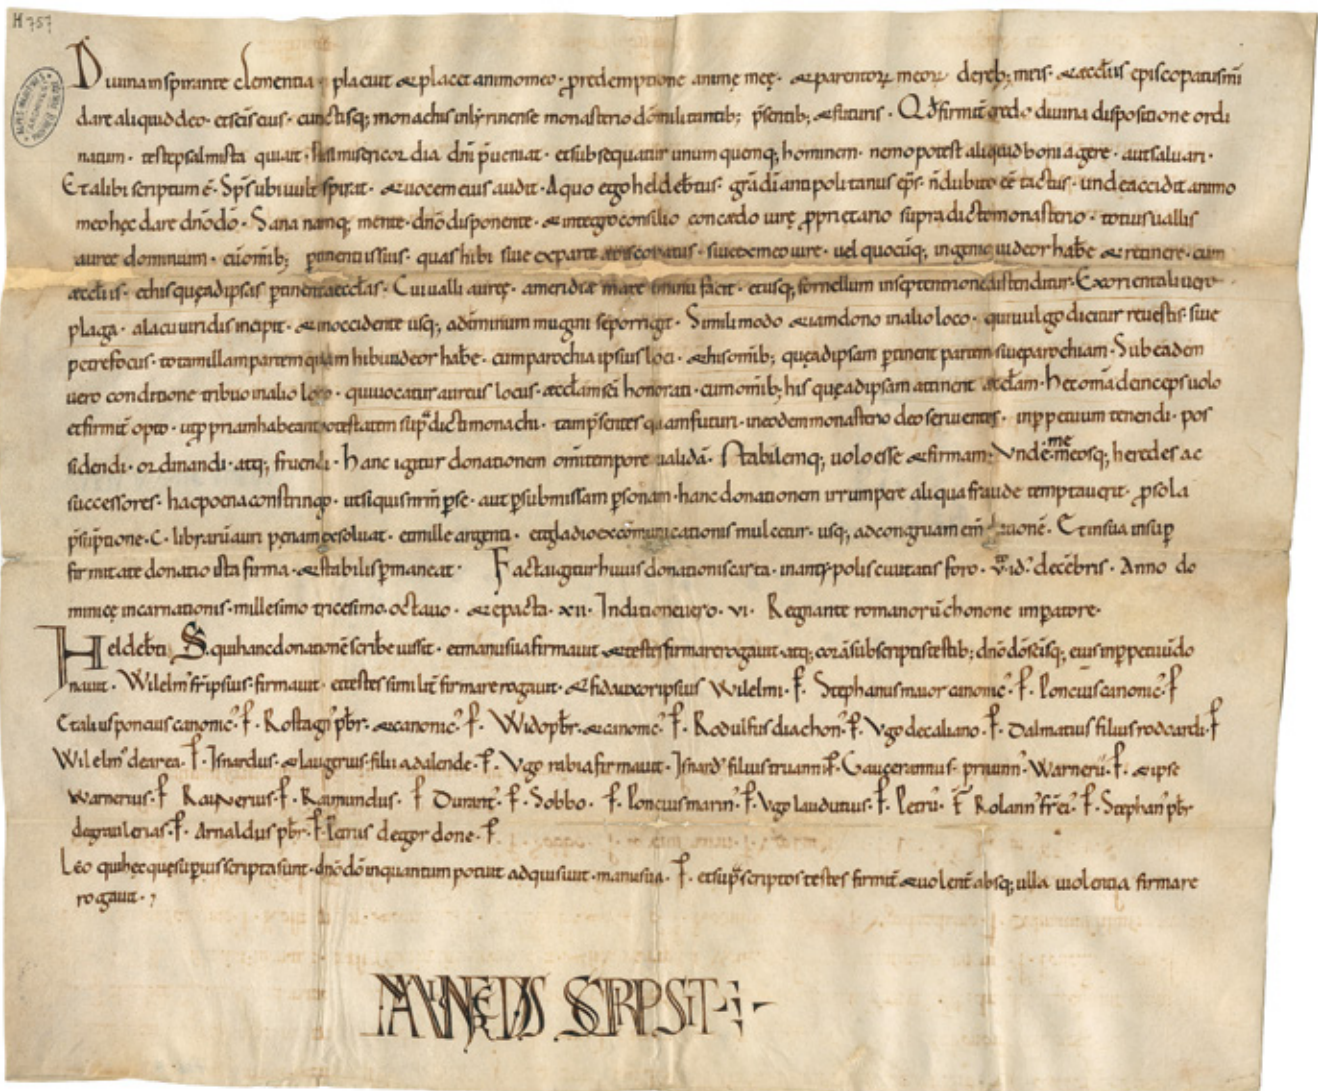 H 757
Diuina inspirante clementia · placuit & placet animo meo · p̱ redemptione animę męę · & parentoꝝ meoꝝ de reb; meis · & ęccliis episcopatus mi
dare aliquid deo · et scis eius · cunctisq; monachis in lyrinense monasterio do militantib; p̄sentib; & futuris · Qd firmit credo diuina dispositione ordi
natum · teste psalmista qui ait · misericordia dni p̄ueniat · et subsequatur unum quemq; hominem · nemo potest aliquid boni agere · aut saluari ·
Et alibi scriptum ē · Sps ubi uult spirat · & uocem eius audit · A quo ego heldebtus · gra di antipolitanus eps · n̄ dubito ēē tactus · unde accidit animo
meo hęc dare dno do · Sana namq; mente · dno disponente · & integro consilio concedo iure p̱prietario supradicto monasterio · totius uallis
auree dominium · cū omib; ptinentiis suis · quas hibi siue ex parte · siue ex meo iure · uel quocūq; ingenio uideor habe & retinere · cum
ęccliis · et his quę ad ipsas ptinent ęcclas · Cui ualli aurę · a meridie mare finem facit · et usq; fornellum in septentrione distenditur · Ex orientali uero
plaga · a lacu uiridis incipit · & in occidente usq; ad cimınum mugini se porrigit · Simili modo & iam dono in alio loco · qui uulgo dicitur reuestis siue
petrefocus · totam illam partem quam hibi uideor habe · cum parochia ipsius loci · & his omib; quę ad ipsam ptinent partem siue parochiam · Sub eadem
uero conditione tribuo in alio loco · qui uocatur aureus locus · ęcclam sci honorati · cum omib; his quę ad ipsam attinent ęcclam · Hec oma deinceps uolo
et firmit opto · ut p̱priam habeant potestatem sup̱dicti monachi · tam p̄sentes quam futuri · in eodem monasterio deo seruientes · in p̱petuum tenendi · pos
sidendi · ordinandi · atq; fruendi · Hanc igitur donationem omi tempore ualidā · stabilemq; uolo esse & firmam · Vnde · me meosq; heredes ac
successores · hac poena constringo · ut si quis nrm p se · aut p submissam psonam · hanc donationem irrumpere aliqua fraude temptauerit · p̱ sola
p̄sūptione · C · librarū auri penam exsoluat · et mille argenti · et gladio excōmunicationis mulcetur · usq; ad congruam em̄dationē · Et in sua insup
firmitate donatio ista firma · & stabilis pmaneat · Facta igitur huius donationis carta · in antypolis ciuitatis foro · id decēbris · Anno do
minicę incarnationis · millesimo tricesimo · octauo · & epacta · xii · Inditione uero · vi · Regnante romanorū chonone impatore ·
Heldebti S · qui hanc donationē scribe iussit · et manu sua firmauit & testes firmare rogauit · atq; corā subscriptis testib; dno do scisq; eius in ppetuū do
nauit · Wilelm fr ipsius · firmauit · et testes similit firmare rogauit · & fida uxor ipsius Wilelmi · f · Stephanus maior canonic · f · Poncius canonic · f
Et alius poncius canonic · f · Rostagn pbr · & canonic · f · Wido pbr · & canonic · f · Rodulfus diachon · f · Vgo de caliano · f · Dalmatius filius rodoardi · f
Wilelm de area · f · Isnardus · & laugerius · filii adalende · f · Vgo rabia firmauit · Isnard filius truanni · f · Gaucerannus · priuinn · Warneriī · f · & ipse
Warnerius · f Rainerius · f · Raimundus · f Durant · f · Bobbo · f · Poncius marin · f · Vgo laudutius · f · Petrū · f Rolann frei · f · Stephan pbr
de graulerias · f · Arnaldus pbr · f · Petrus de gordone · f
Leo qui hęc quę supius scripta sunt · dno do in quantum potuit adquisiuit · manu sua · f · et sup̱scriptos testes firmit & uolent absq; ulla uiolentia firmare
rogauit ·
SCRIPSIT